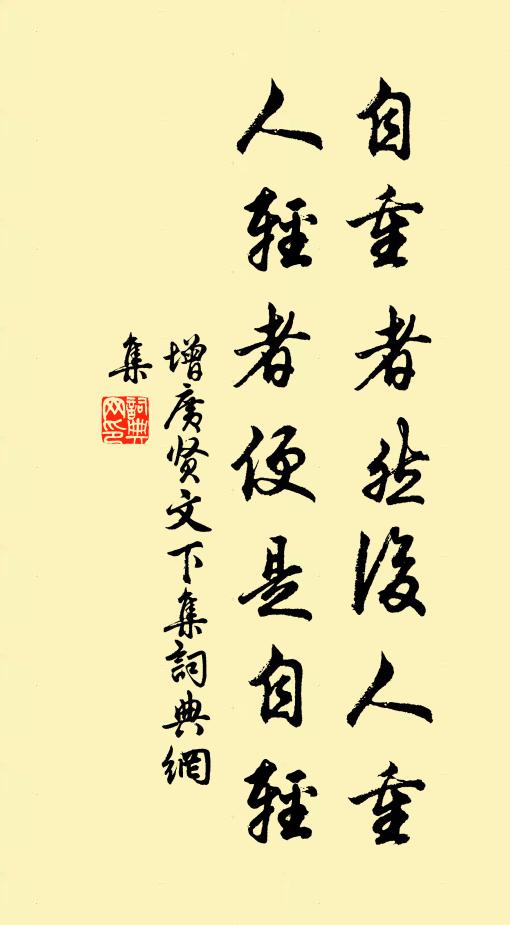 自重者然後人重
人輕者便是自輕
增廣贤文下集詞典網
集
詞典
网印